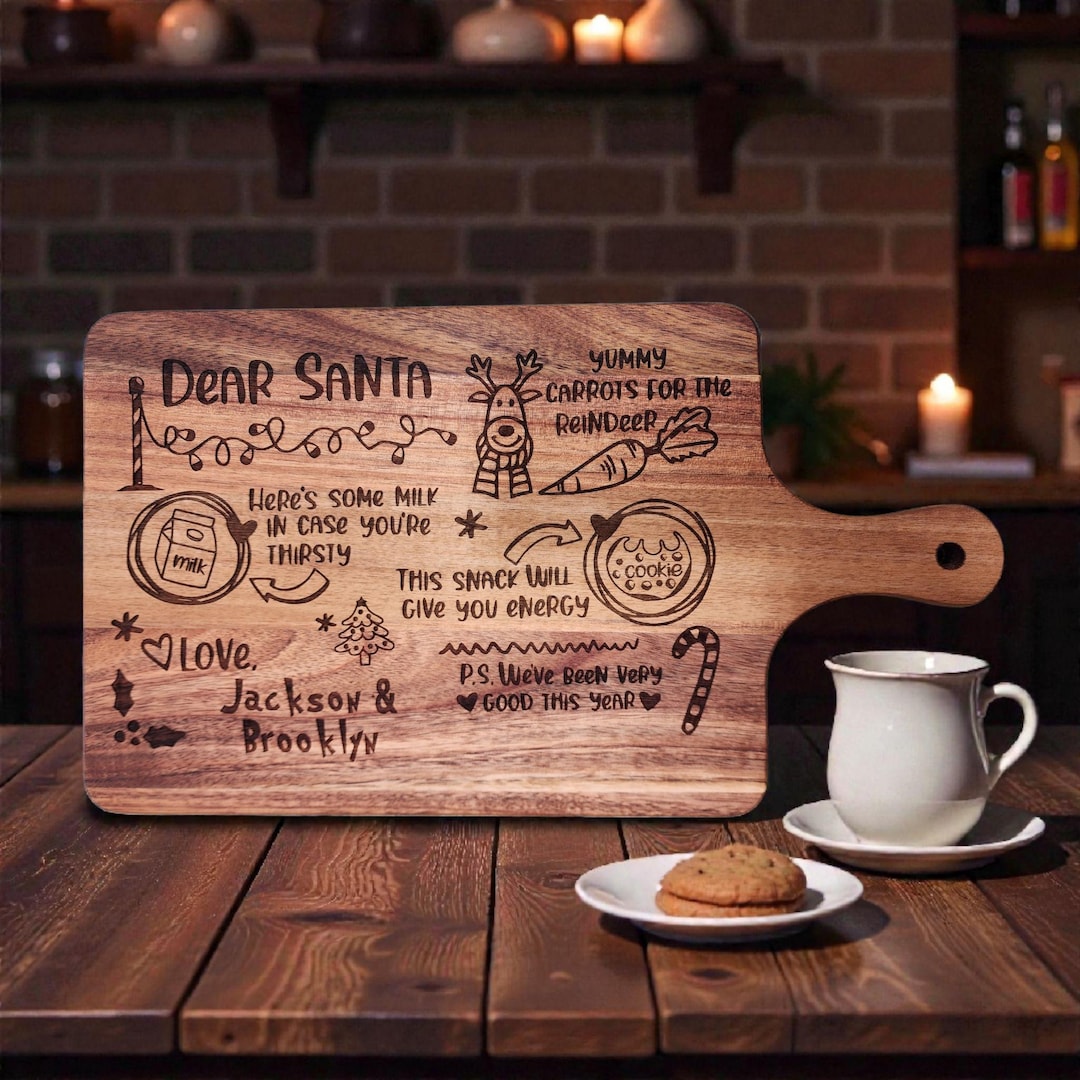 Dear Santa
Yummy
Carrots for the
Reindeer
Here's some milk
in case you're
thirsty
milk
This snack will
give you energy
cookie
Love,
Jackson &
Brooklyn
P.S. We've been very
good this year